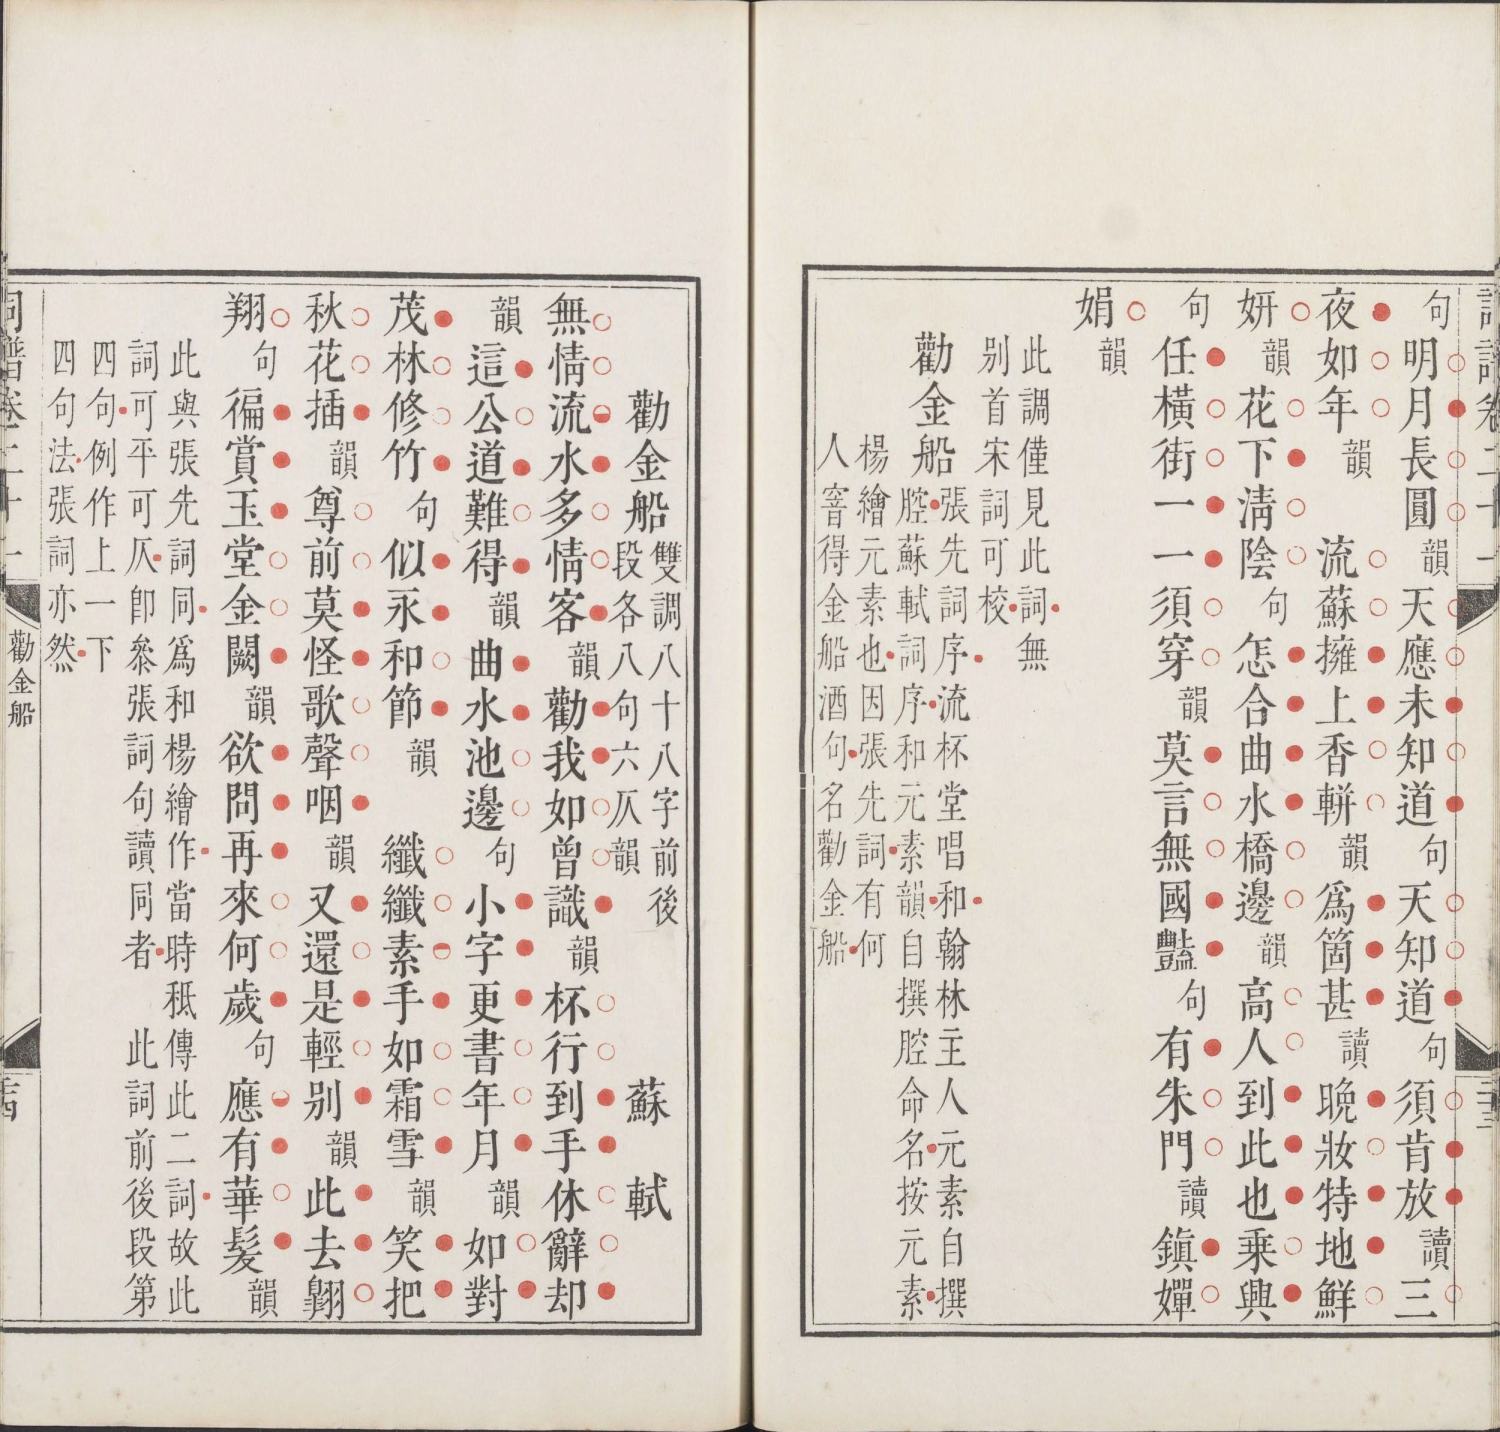 句明月長圓韻天應未知道句天知道句須肯放讀三
夜如年韻流蘇擁上香輧韻爲箇甚讀晩妝特地鮮
妍韻花下淸陰句怎合曲水橋邊韻高人到此也乗興
句任橫街一一須穿韻莫言無國豔句有朱門讀鎭嬋
娟韻
此調僅見此詞無
别首宋詞可校
勸金船張先詞序流杯堂唱和翰林主人元素自撰
腔蘇軾詞序和元素韻自撰腔命名按元素
楊繪元素也因張先詞有何
人窨得金船酒句名勸金船
勸金船雙調八十八字前後
段各八句六仄韻
蘇軾
無情流水多情客韻勸我如曾識韻杯行到手休辭却
韻這公道難得韻曲水池邊句小字更書年月韻如對
茂林修竹句似永和節韻纖纖素手如霜雪韻笑把
秋花插韻尊前莫怪歌聲咽韻又還是輕别韻此去翺
翔句徧賞玉堂金闕韻欲問再來何歲句應有華髮韻
此與張先詞同爲和楊繪作當時秪傳此二詞故此
詞可平可仄卽叅張詞句讀同者此詞前後段第
四句例作上一下
四句法張詞亦然
詞譜卷二十一
勸金船